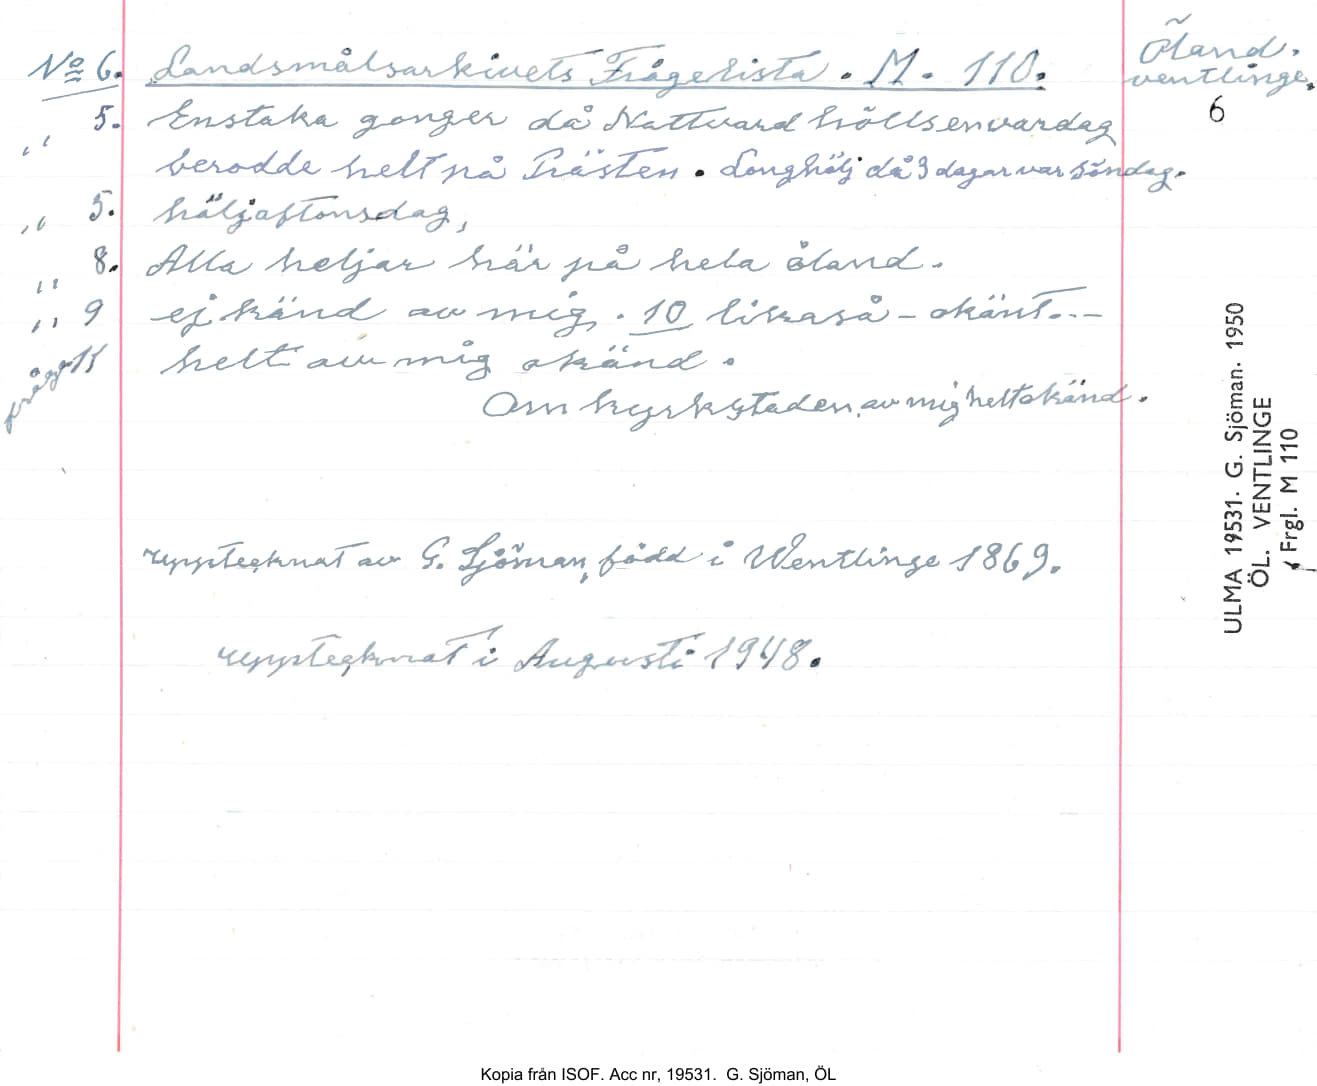 No 6. Landsmålsarkivets Frågelista. M. 110.
Öland.
ventlinge.
6
,, 5. Enstaka gonger då Nattvard hölls en vardag
berodde helt på Prästen. Longhälj då 3 dagar var söndag.
,, 5. häljaftonsdag,
,, 8. Alla heljar här på hela öland.
,, 9 ej känd av mig. 10 likaså - okänt.--
fråga 11 helt av mig okänd.
Om kyrkstaden av mig helt okänd.
upptecknat av G. Sjöman, född i Wentlinge 1869.
upptecknat i Augusti 1948.
ULMA 19531. G. Sjöman. 1950
ÖL. VENTLINGE
Frgl. M 110
Kopia från ISOF. Acc nr, 19531. G. Sjöman, ÖL